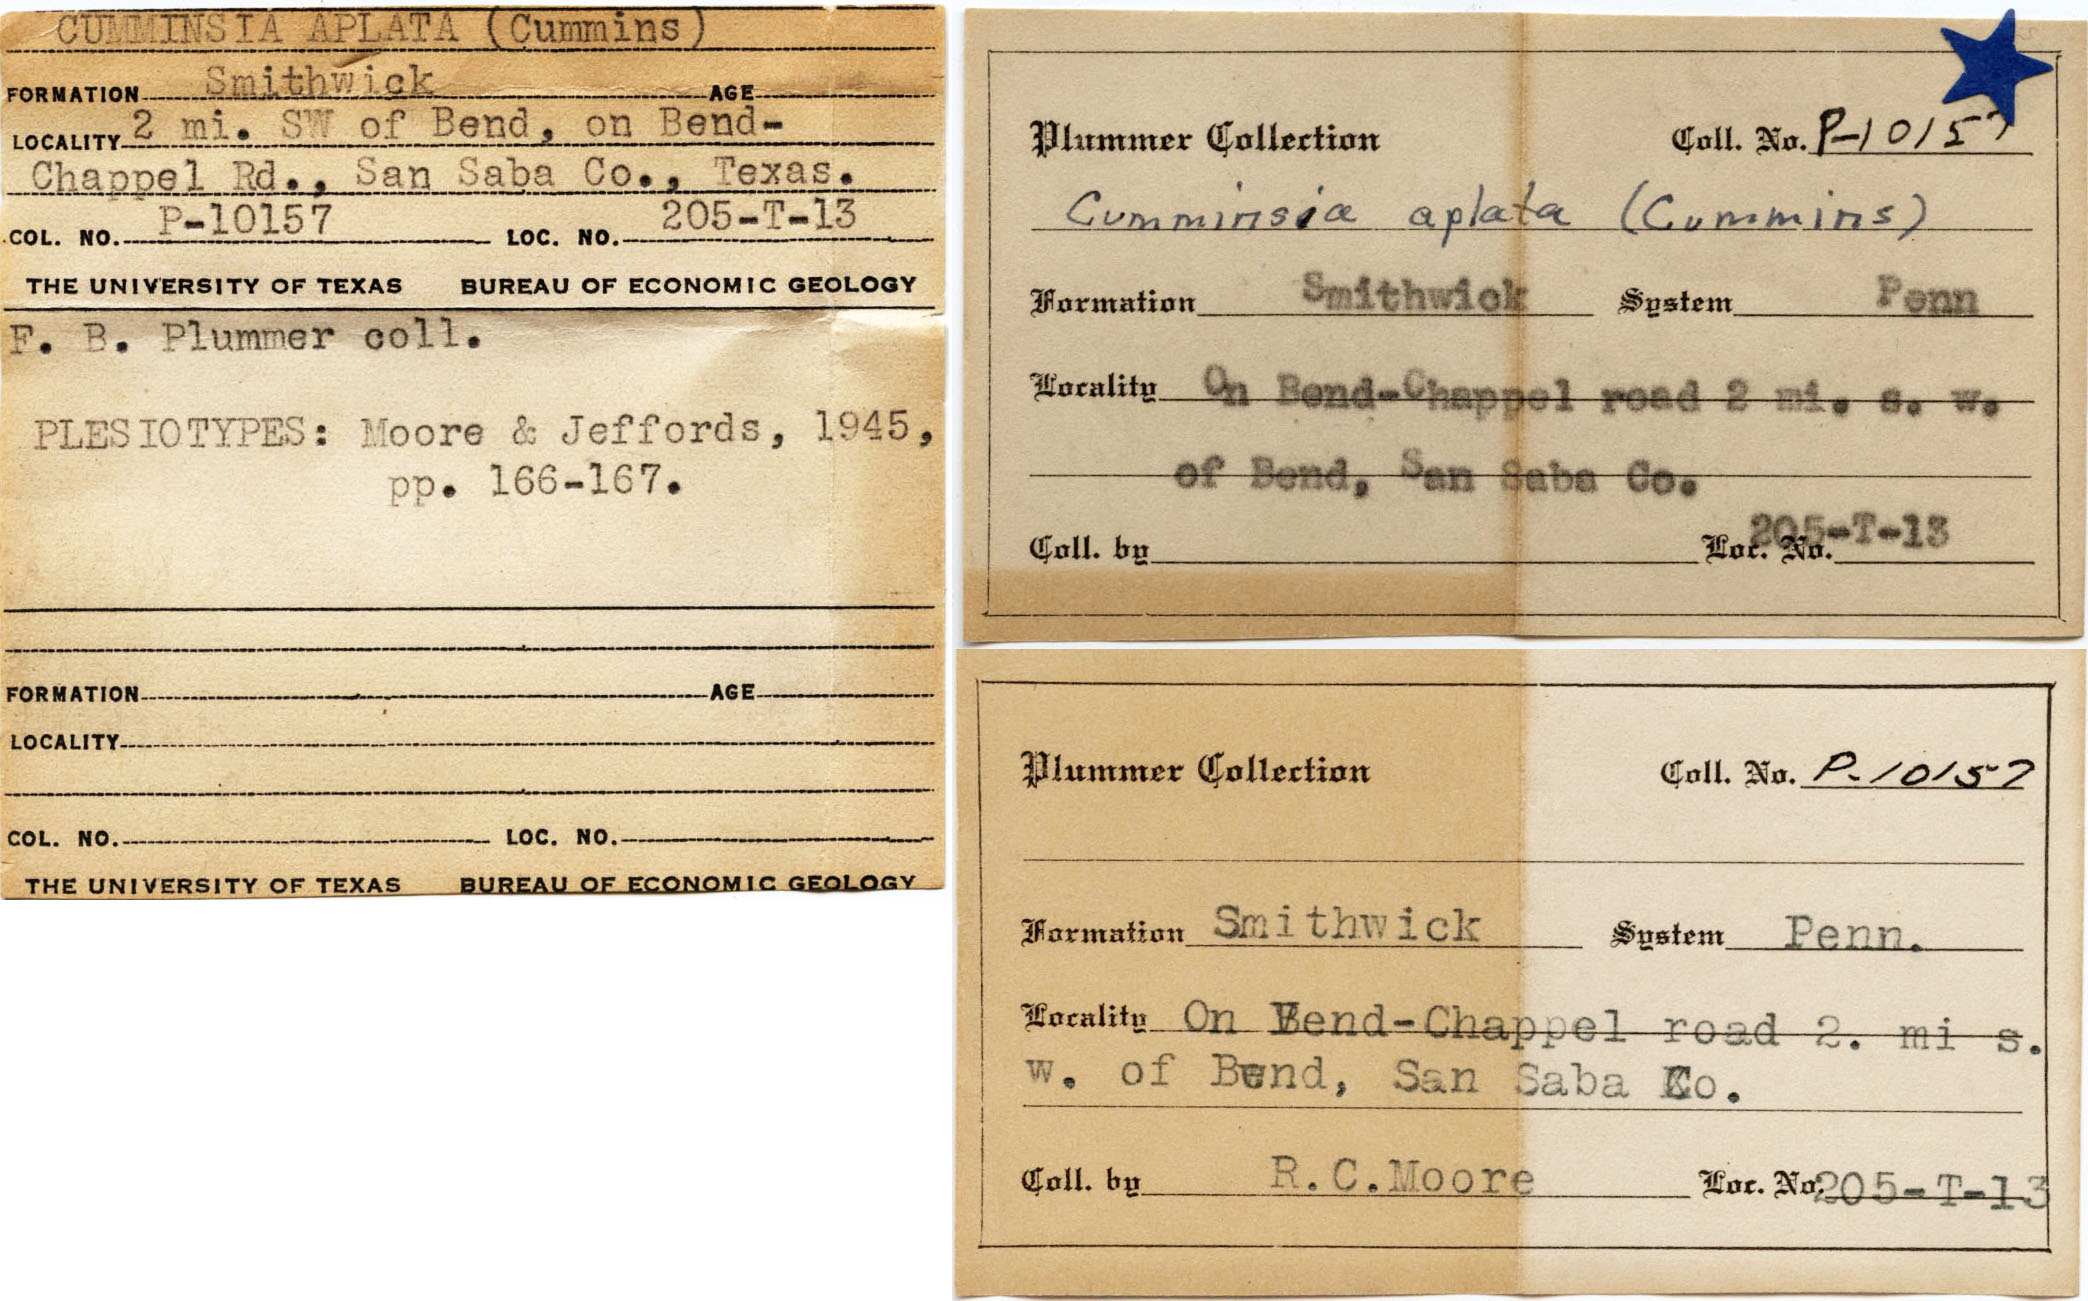 CUMMINSIA APLATA (Cummins)
FORMATION Smithwick AGE
LOCALITY 2 mi. SW of Bend, on Bend-
Chappel Rd., San Saba Co., Texas.
COL. NO. P-10157 LOC. NO. 205-T-13
THE UNIVERSITY OF TEXAS BUREAU OF ECONOMIC GEOLOGY
F. B. Plummer coll.
PLESIOTYPES: Moore & Jeffords, 1945,
pp. 166-167.
FORMATION AGE
LOCALITY
COL. NO. LOC. NO.
THE UNIVERSITY OF TEXAS BUREAU OF ECONOMIC GEOLOGY
Plummer Collection Coll. No. P-10157
Cumminsia aplata (Cummins)
Formation Smithwick System Penn
Locality On Bend-Chappel road 2 mi. s. w.
of Bend, San Saba Co.
Coll. by Loc. No. 205-T-13
Plummer Collection Coll. No. P-10157
Formation Smithwick System Penn.
Locality On Bend-Chappel road 2. mi s.
w. of Bend, San Saba Co.
Coll. by R.C.Moore Loc. No. 205-T-13